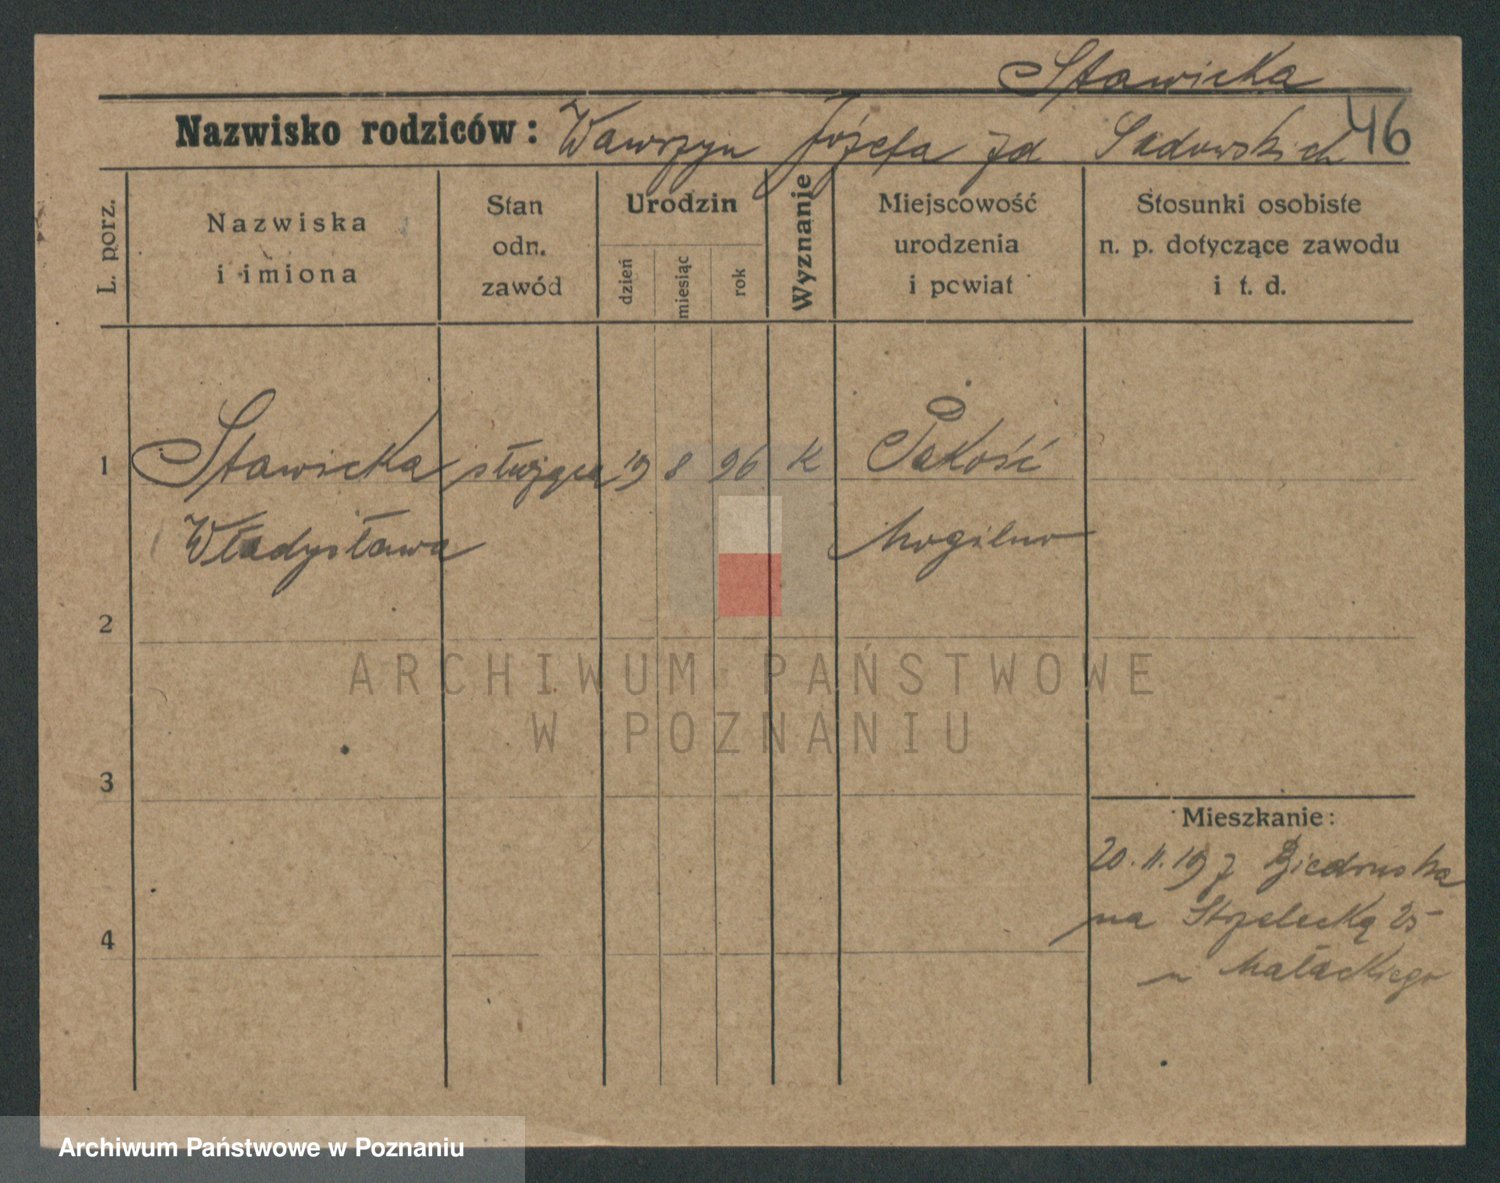 Stawicka
46
Nazwisko rodziców: Wawrzyn Józefa zd Sadowskich
L. porz.
Nazwiska
i imiona
Stan
odn.
zawód
Urodzin
dzień
miesiąc
rok
Wyznanie
Miejscowość
urodzenia
i powiat
Stosunki osobiste
n. p. dotyczące zawodu
i t. d.
1 Stawicka służąca 19 8 96 K Pakość
Władysława Mogilno
2
3
4
Mieszkanie:
20. II. 19
na Strzelecką 25
u Małackiego
ARCHIWUM PAŃSTWOWE
W POZNANIU
Archiwum Państwowe w Poznaniu